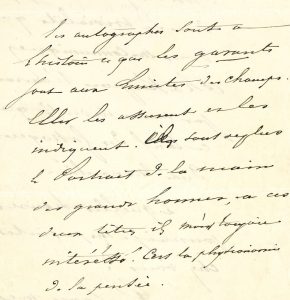 les autographes sont à
l'histoire ce que les garants
sont aux limites des champs.
Elles les assurent et les
indiquent. sont
le Portrait de la main
des grands hommes, à ces
deux titres ils m'ont toujours
intéressé. C'est la physionomie
de la pensée.